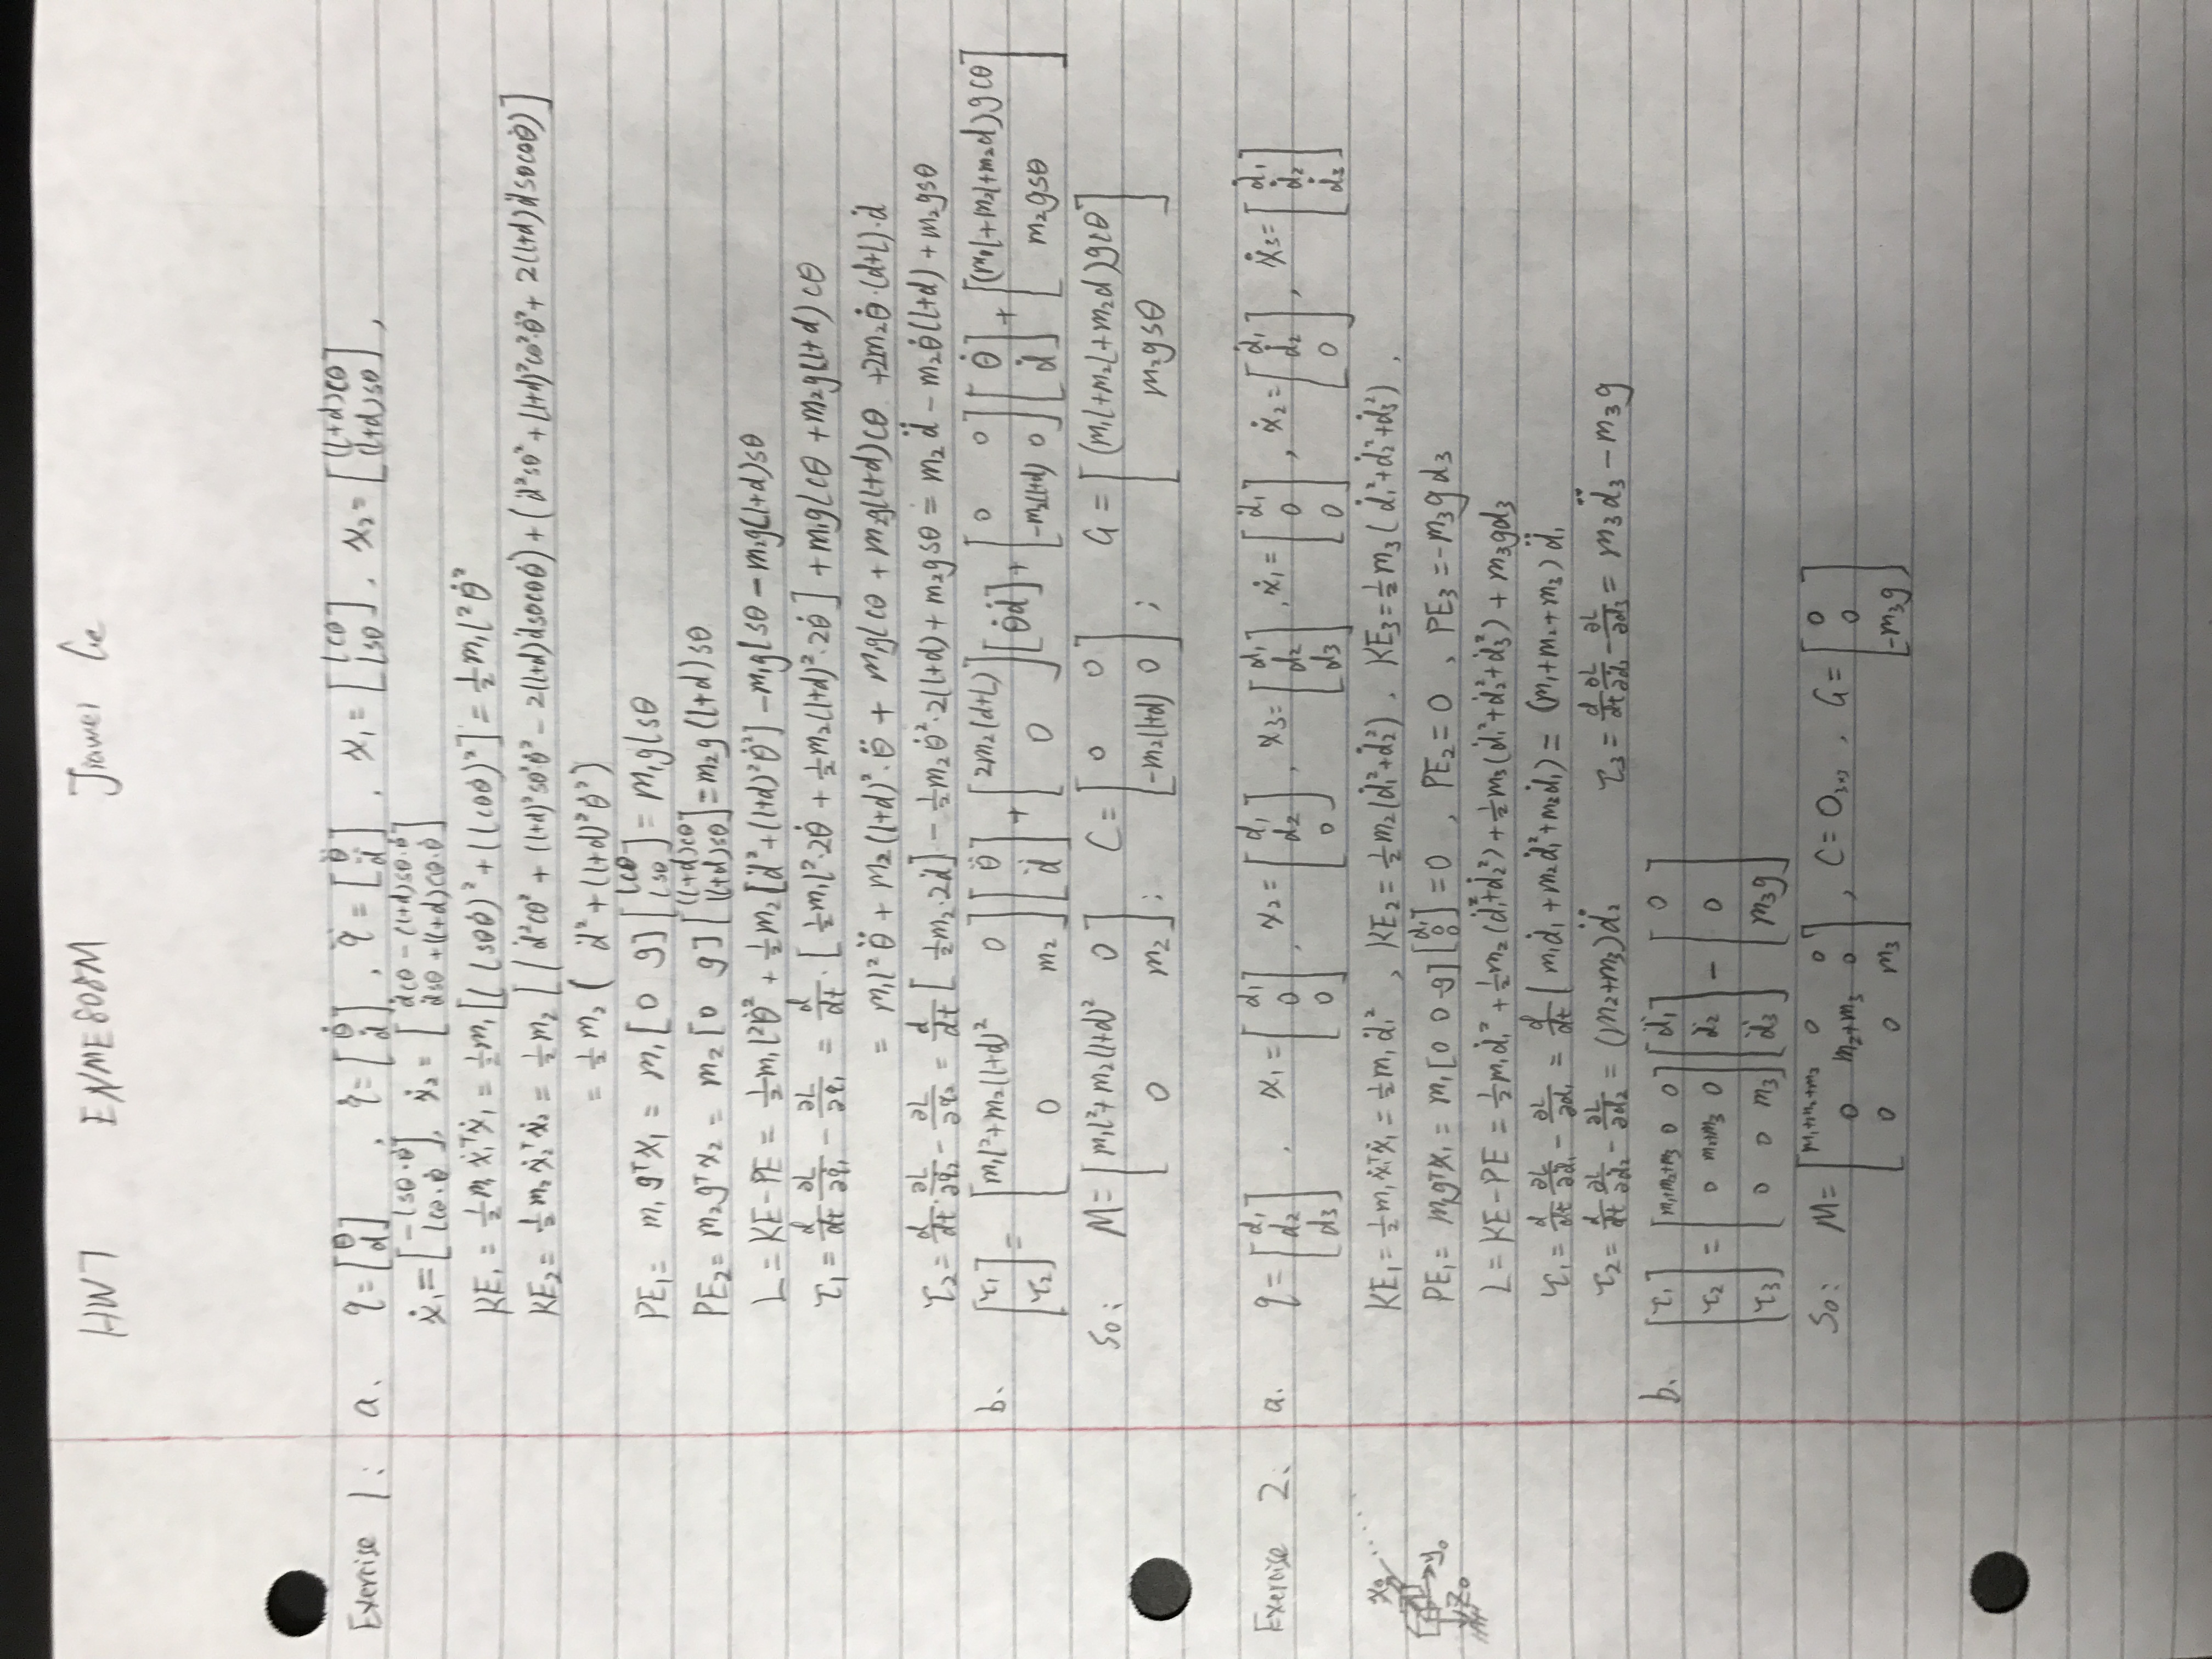 HW7 ENME808M Jiawei Ge
Exercise 1: a. q = [θ; d], q̇ = [θ̇; ḋ], q̈ = [θ̈; d̈], x₁ = [lcθ; lsθ], x₂ = [(l+d)cθ; (l+d)sθ],
ẋ₁ = [-lsθ·θ̇; lcθ·θ̇], ẋ₂ = [ḋcθ - (l+d)sθ·θ̇; ḋsθ + (l+d)cθ·θ̇]
KE₁ = ½m₁ẋ₁ᵀẋ₁ = ½m₁[(lsθθ̇)² + (lcθθ̇)²] = ½m₁l²θ̇²
KE₂ = ½m₂ẋ₂ᵀẋ₂ = ½m₂[(ḋ²cθ² + (l+d)²sθ²θ̇² - 2(l+d)ḋsθcθθ̇) + (ḋ²sθ² + (l+d)²cθ²·θ̇² + 2(l+d)ḋsθcθθ̇)]
= ½m₂(ḋ² + (l+d)²θ̇²)
PE₁ = m₁gᵀx₁ = m₁[0 g][lcθ; lsθ] = m₁glsθ
PE₂ = m₂gᵀx₂ = m₂[0 g][(l+d)cθ; (l+d)sθ] = m₂g(l+d)sθ
L = KE-PE = ½m₁l²θ̇² + ½m₂[ḋ² + (l+d)²θ̇²] - m₁glsθ - m₂g(l+d)sθ
τ₁ = d/dt ∂L/∂q̇₁ - ∂L/∂q₁ = d/dt·[½m₁l²·2θ̇ + ½m₂(l+d)²·2θ̇] + m₁glcθ + m₂g(l+d)cθ
= m₁l²θ̈ + m₂(l+d)²·θ̈ + m₁glcθ + m₂g(l+d)cθ + 2m₂θ̇·(d+L)·ḋ
τ₂ = d/dt·∂L/∂q̇₂ - ∂L/∂q₂ = d/dt[½m₂·2ḋ] - ½m₂θ̇²·2(l+d) + m₂gsθ = m₂d̈ - m₂θ̇(l+d) + m₂gsθ
b. [τ₁; τ₂] = [m₁l²+m₂(l+d)² 0; 0 m₂][θ̈; d̈] + [2m₂(d+L); 0][θ̇ḋ] + [0 0; -m₂(l+d) 0][θ̇; ḋ] + [(m₁l+m₂l+m₂d)gcθ; m₂gsθ]
So: M = [m₁l²+m₂(l+d)² 0; 0 m₂]; C = [0 0; -m₂(l+d) 0]; G = [(m₁l+m₂l+m₂d)gcθ; m₂gsθ]
Exercise 2: a. q = [d₁; d₂; d₃], x₁ = [d₁; 0; 0], x₂ = [d₁; d₂; 0], x₃ = [d₁; d₂; d₃], ẋ₁ = [ḋ₁; 0; 0], ẋ₂ = [ḋ₁; ḋ₂; 0], ẋ₃ = [ḋ₁; ḋ₂; ḋ₃]
x₀
y₀
z₀
KE₁ = ½m₁ẋ₁ᵀẋ₁ = ½m₁ḋ₁², KE₂ = ½m₂(ḋ₁²+ḋ₂²), KE₃ = ½m₃(ḋ₁²+ḋ₂²+ḋ₃²),
PE₁ = m₁gᵀx₁ = m₁[0 0 -g][d₁; 0; 0] = 0, PE₂ = 0, PE₃ = -m₃gd₃
L = KE-PE = ½m₁ḋ₁² + ½m₂(ḋ₁²+ḋ₂²) + ½m₃(ḋ₁²+ḋ₂²+ḋ₃²) + m₃gd₃
τ₁ = d/dt ∂L/∂ḋ₁ - ∂L/∂d₁ = d/dt(m₁ḋ₁ + m₂ḋ₁² + m₃ḋ₁) = (m₁+m₂+m₃)d̈₁
τ₂ = d/dt ∂L/∂ḋ₂ - ∂L/∂d₂ = (m₂+m₃)d̈₂ τ₃ = d/dt ∂L/∂ḋ₃ - ∂L/∂d₃ = m₃d̈₃ - m₃g
b. [τ₁; τ₂; τ₃] = [m₁+m₂+m₃ 0 0; 0 m₂+m₃ 0; 0 0 m₃][d̈₁; d̈₂; d̈₃] - [0; 0; m₃g]
So: M = [m₁+m₂+m₃ 0 0; 0 m₂+m₃ 0; 0 0 m₃], C = 0₃ₓ₃, G = [0; 0; -m₃g]